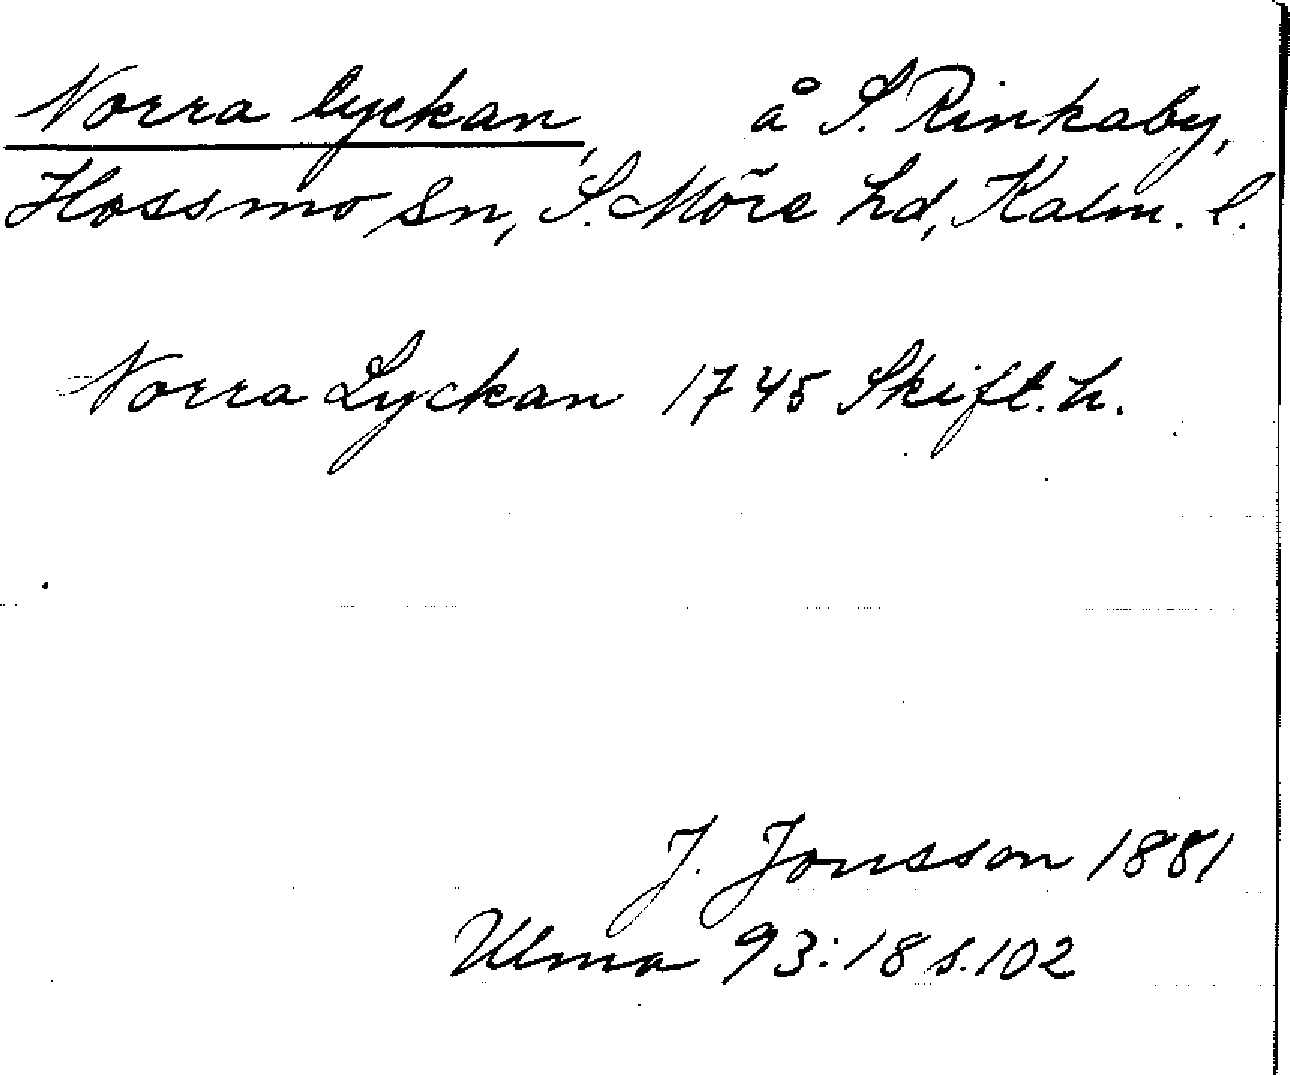 Norra lyckan, å S. Rinkaby,
Hossmo sn, S. Möre hd, Kalm. l.
Norra Lyckan 1745 Skift.h.
J. Jonsson 1881
Ulma 93:18 s.102